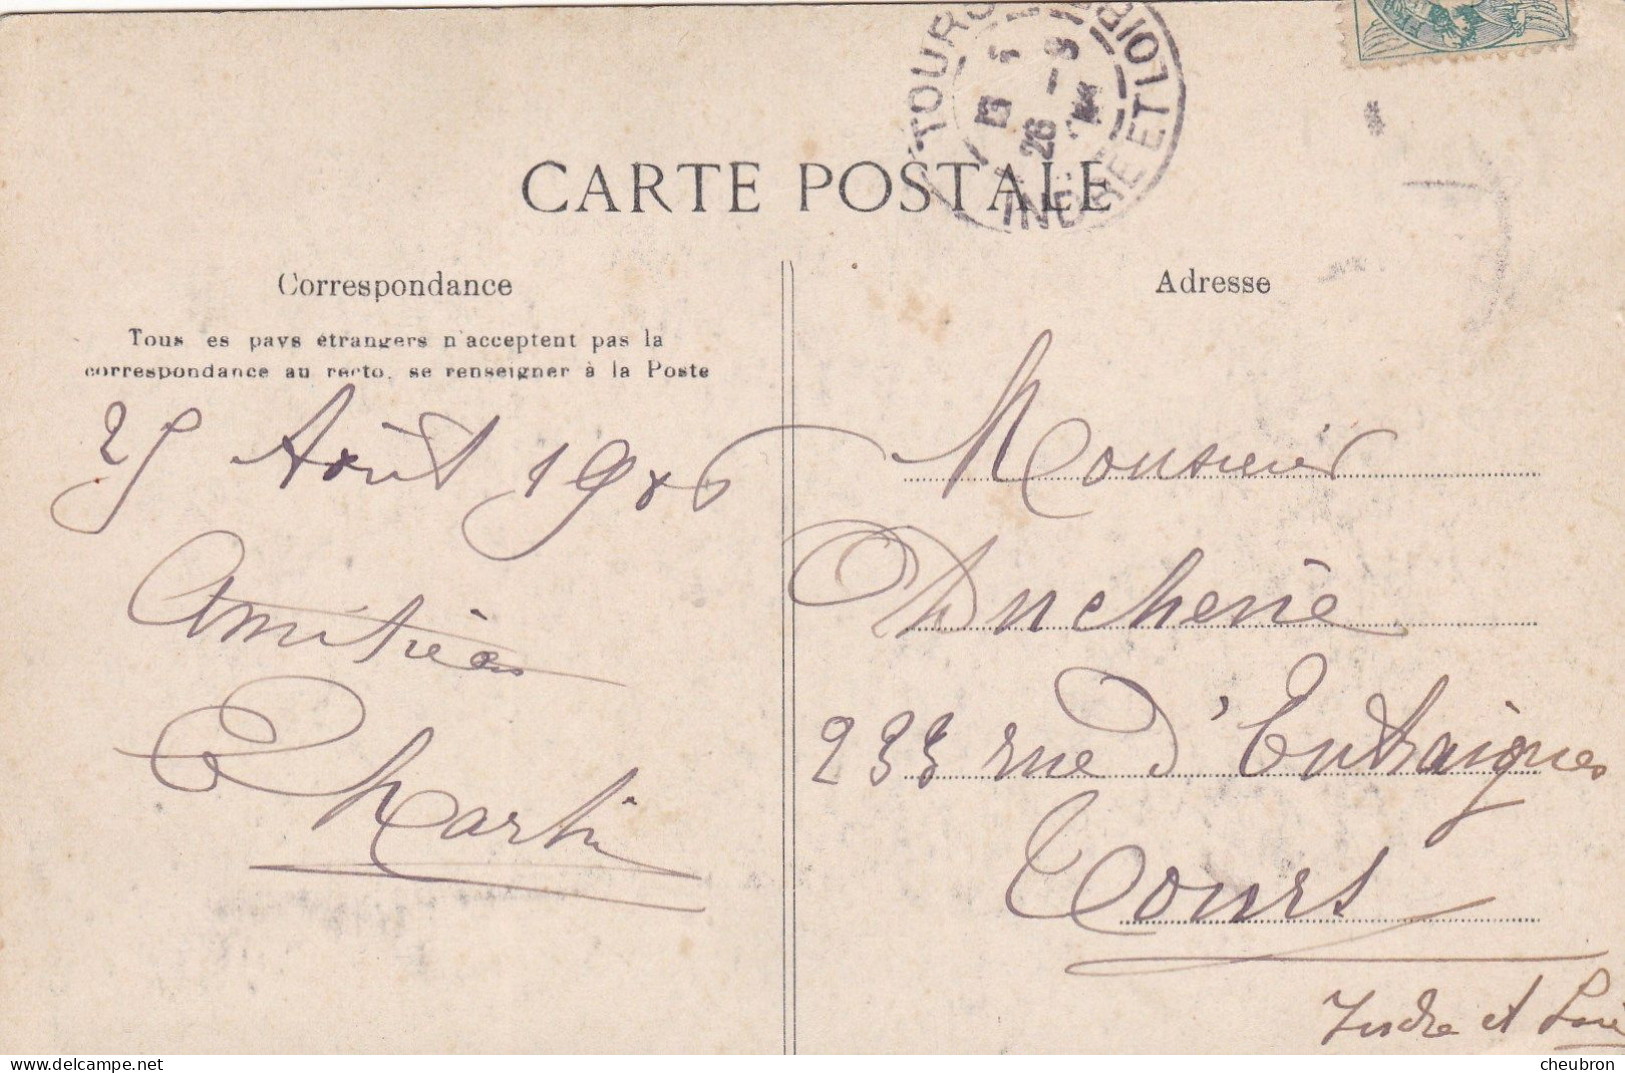 TOURS
INDRE ET LOIRE
CARTE POSTALE
Correspondance
Tous es pays étrangers n'acceptent pas la
correspondance au recto, se renseigner à la Poste
25 Août 1906
Amitiés
Martin
Adresse
Monsieur
Ducherie
233 rue d'Entraigues
Tours
Indre et Loire
cheubron